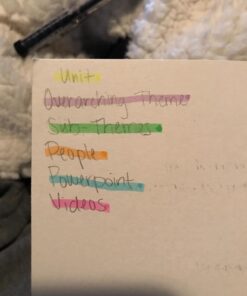 Unit
Overarching Theme
Sub-Themes
People
Powerpoint
Videos